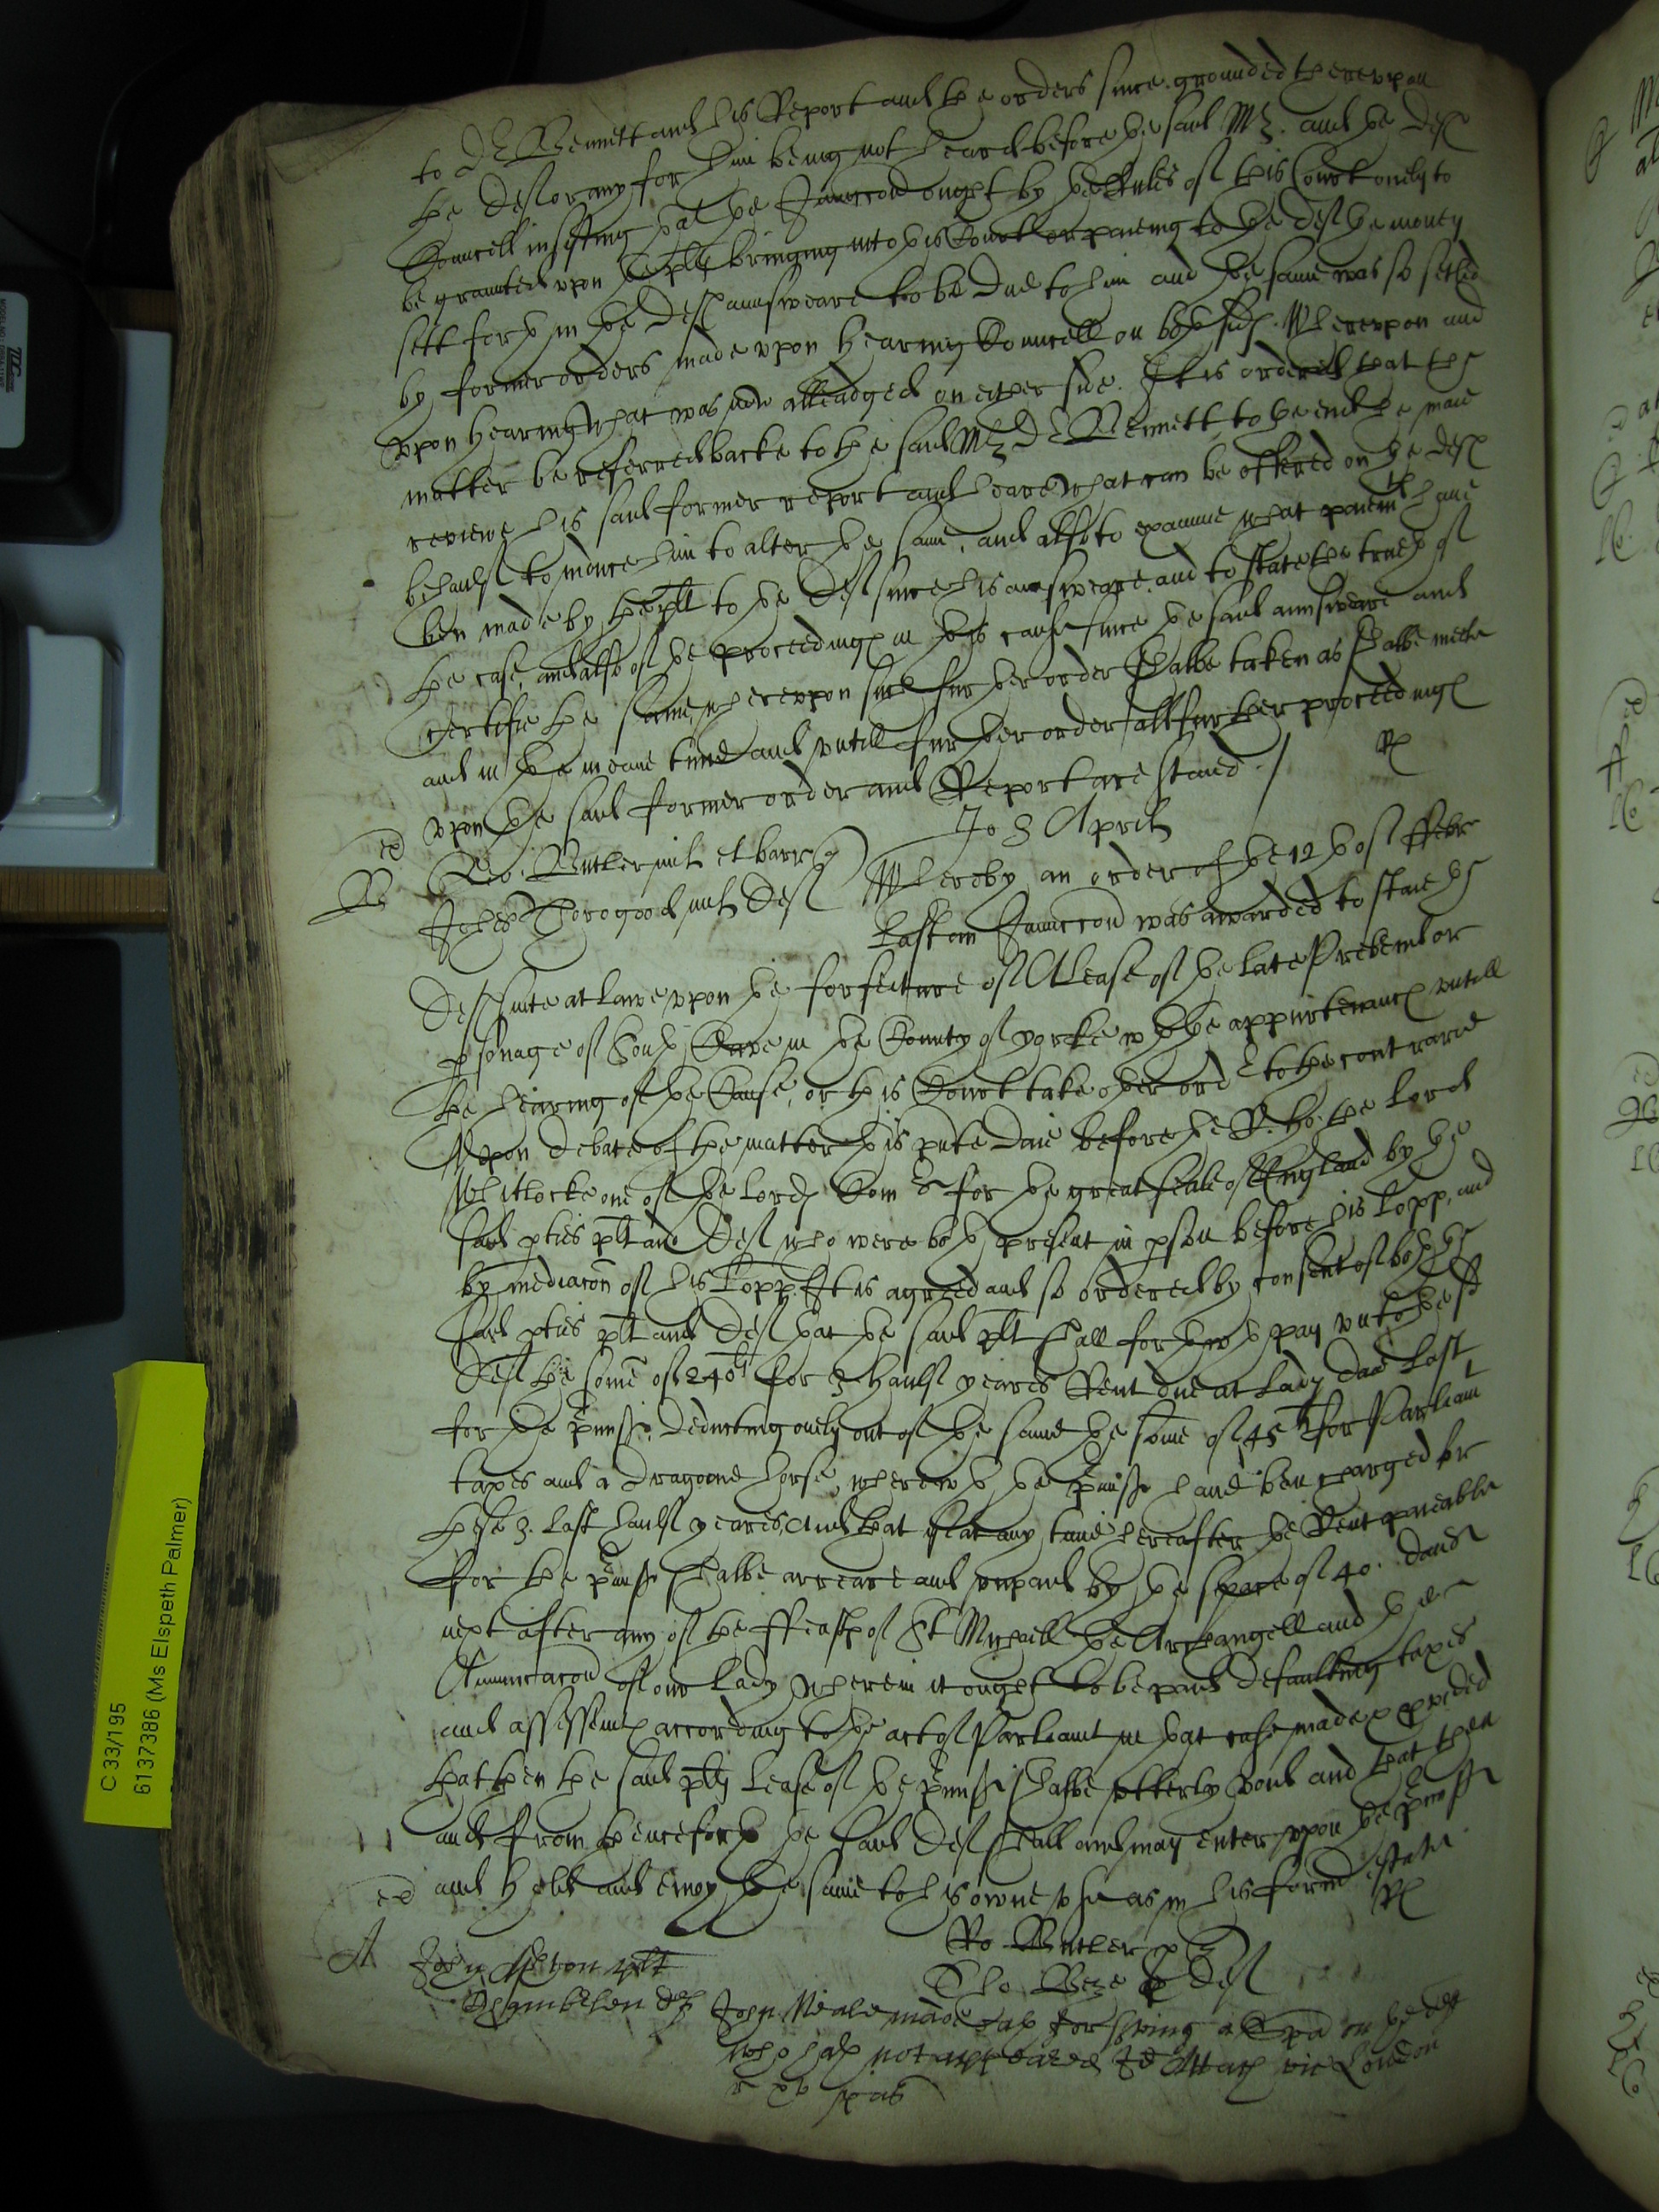 to Dr Bennett and his Report and the orders since grounded thereupon
the Deft or any for him being not heard before the said Mr. and the Defts
Councell insisting that the Iniuncion ought by the Rules of this Court onely to
be graunted upon the plts bringing into this Court or paieing to the Deft the money
sett forth in the Defts aunsweare to be due to him and the same was so setled
by former orders made upon hearing Councell on both sides. Whereupon and
upon hearing what was now alleadged on either side. It is ordered that the
matter be referred backe to the said Mr Dr Bennett, to the end he maie
reviewe his said former report and heare what can be offered on the Defts
behaulf to move him to alter the same, and also to examine what paiemts have
ben made by the plt to the Deft since his aunsweare and to state the truth of
the case, and also of the proceedings in this cause since the said aunsweare and
certifie the same, whereupon such further order shalbe taken as shalbe meete
and in the meane time and untill further order all further proceedings
upon the said former order and Report are staied /
Jo 3 Aprilis
Butler mil et barr
B Thorogood mil Deft Whereby an order of the 12th of ffebr
last an Iniuncion was awarded to staie the
Defts suite at lawe upon the forfeiture of A Lease of the late Prebend or
psonage of South Cave in the County of Yorke wth the appurtenancs untill
the hearing of the Cause, or this Court take other order to the contrarie
Upon debate of the matter this pnte daie before the R. ho: the Lord
Whitlocke one of the Lords Comrs for the great seale of England by the
said pties plt and Deft who were both present in pson before his Lopp, and
by mediacon of his Lopp. It is agreed and so ordered by consent of both the
said pties plt and Deft that the said plt shall forthwth pay unto the sd
Deft the some of 240li for 3 haulf yeares Rent due at Lady daie last
for the pmisses, deducting onely out of the same the some of 45li for Parliamt
taxes and a dragoone horse, wherewth the pmisses have ben charged for
these 3. last haulf yeares, And that if at any time hereafter the Rent paieable
for the pmisses shalbe arreare and unpaid by the space of 40. daies
next after any of the ffeasts of St Michaell the Archangell and the
Annunciacon of our Lady wherein it ought to be paid defaulking taxes
and assessmts according to the act of Parliamt in that case made & pvided
that then the said plts Lease of the pmisses shalbe utterly void and that then
and from thenceforth the said Deft shall and may enter upon the pmisses
and hold and enioy the same to his owne use as in his formr estate
Ro Butler p
Tho p Deft
A John plt
deft John Neale made oath for sving a Spa on the deft
who hath not appeared Id Attach vic London